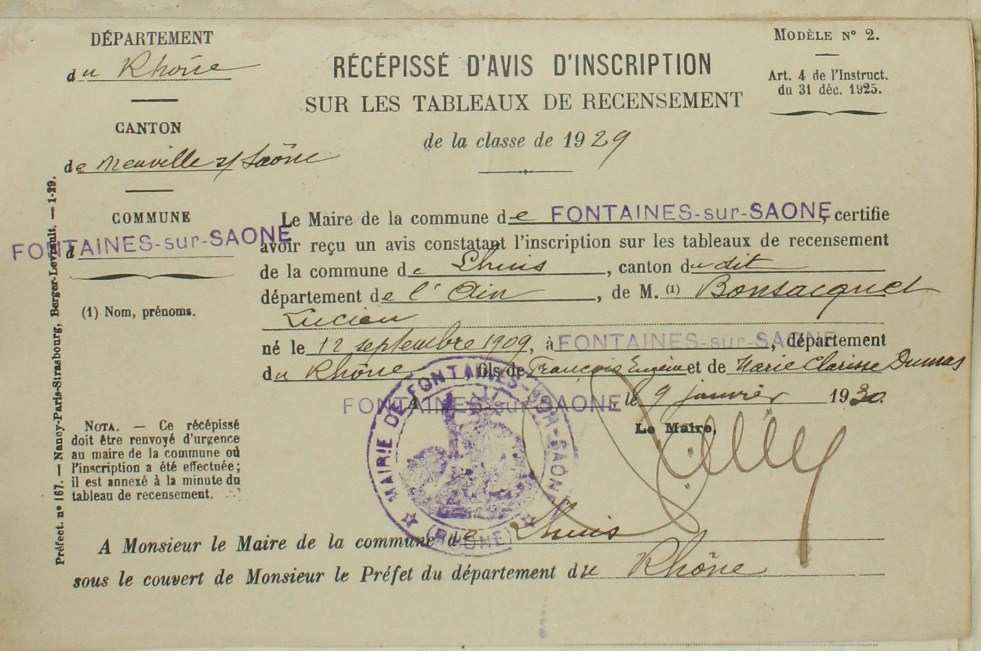 DÉPARTEMENT
du Rhône
CANTON
de Neuville s/ Saône
COMMUNE
d FONTAINES-sur-SAONE
(1) Nom, prénoms.
NOTA. — Ce récépissé
doit être renvoyé d'urgence
au maire de la commune où
l'inscription a été effectuée;
il est annexé à la minute du
tableau de recensement.
Préfect. n° 167. — Nancy-Paris-Strasbourg, Berger-Levrault. — 1-29.
RÉCÉPISSÉ D'AVIS D'INSCRIPTION
SUR LES TABLEAUX DE RECENSEMENT
de la classe de 1929
MODÈLE N° 2.
Art. 4 de l'Instruct.
du 31 déc. 1925.
Le Maire de la commune de FONTAINES-sur-SAONE, certifie
avoir reçu un avis constatant l'inscription sur les tableaux de recensement
de la commune de Lhuis, canton du dit
département de l'Ain, de M. (1) Bonsacquet
Lucien
né le 12 septembre 1909, à FONTAINES-sur-SAONE, département
du Rhône, fils de François Eugène et de Marie Clarisse Dumas
A FONTAINES-sur-SAONE le 9 janvier 1930.
Le Maire,
MAIRIE DE FONTAINES-SUR-SAONE
(RHÔNE)
A Monsieur le Maire de la commune de Lhuis
sous le couvert de Monsieur le Préfet du département du Rhône